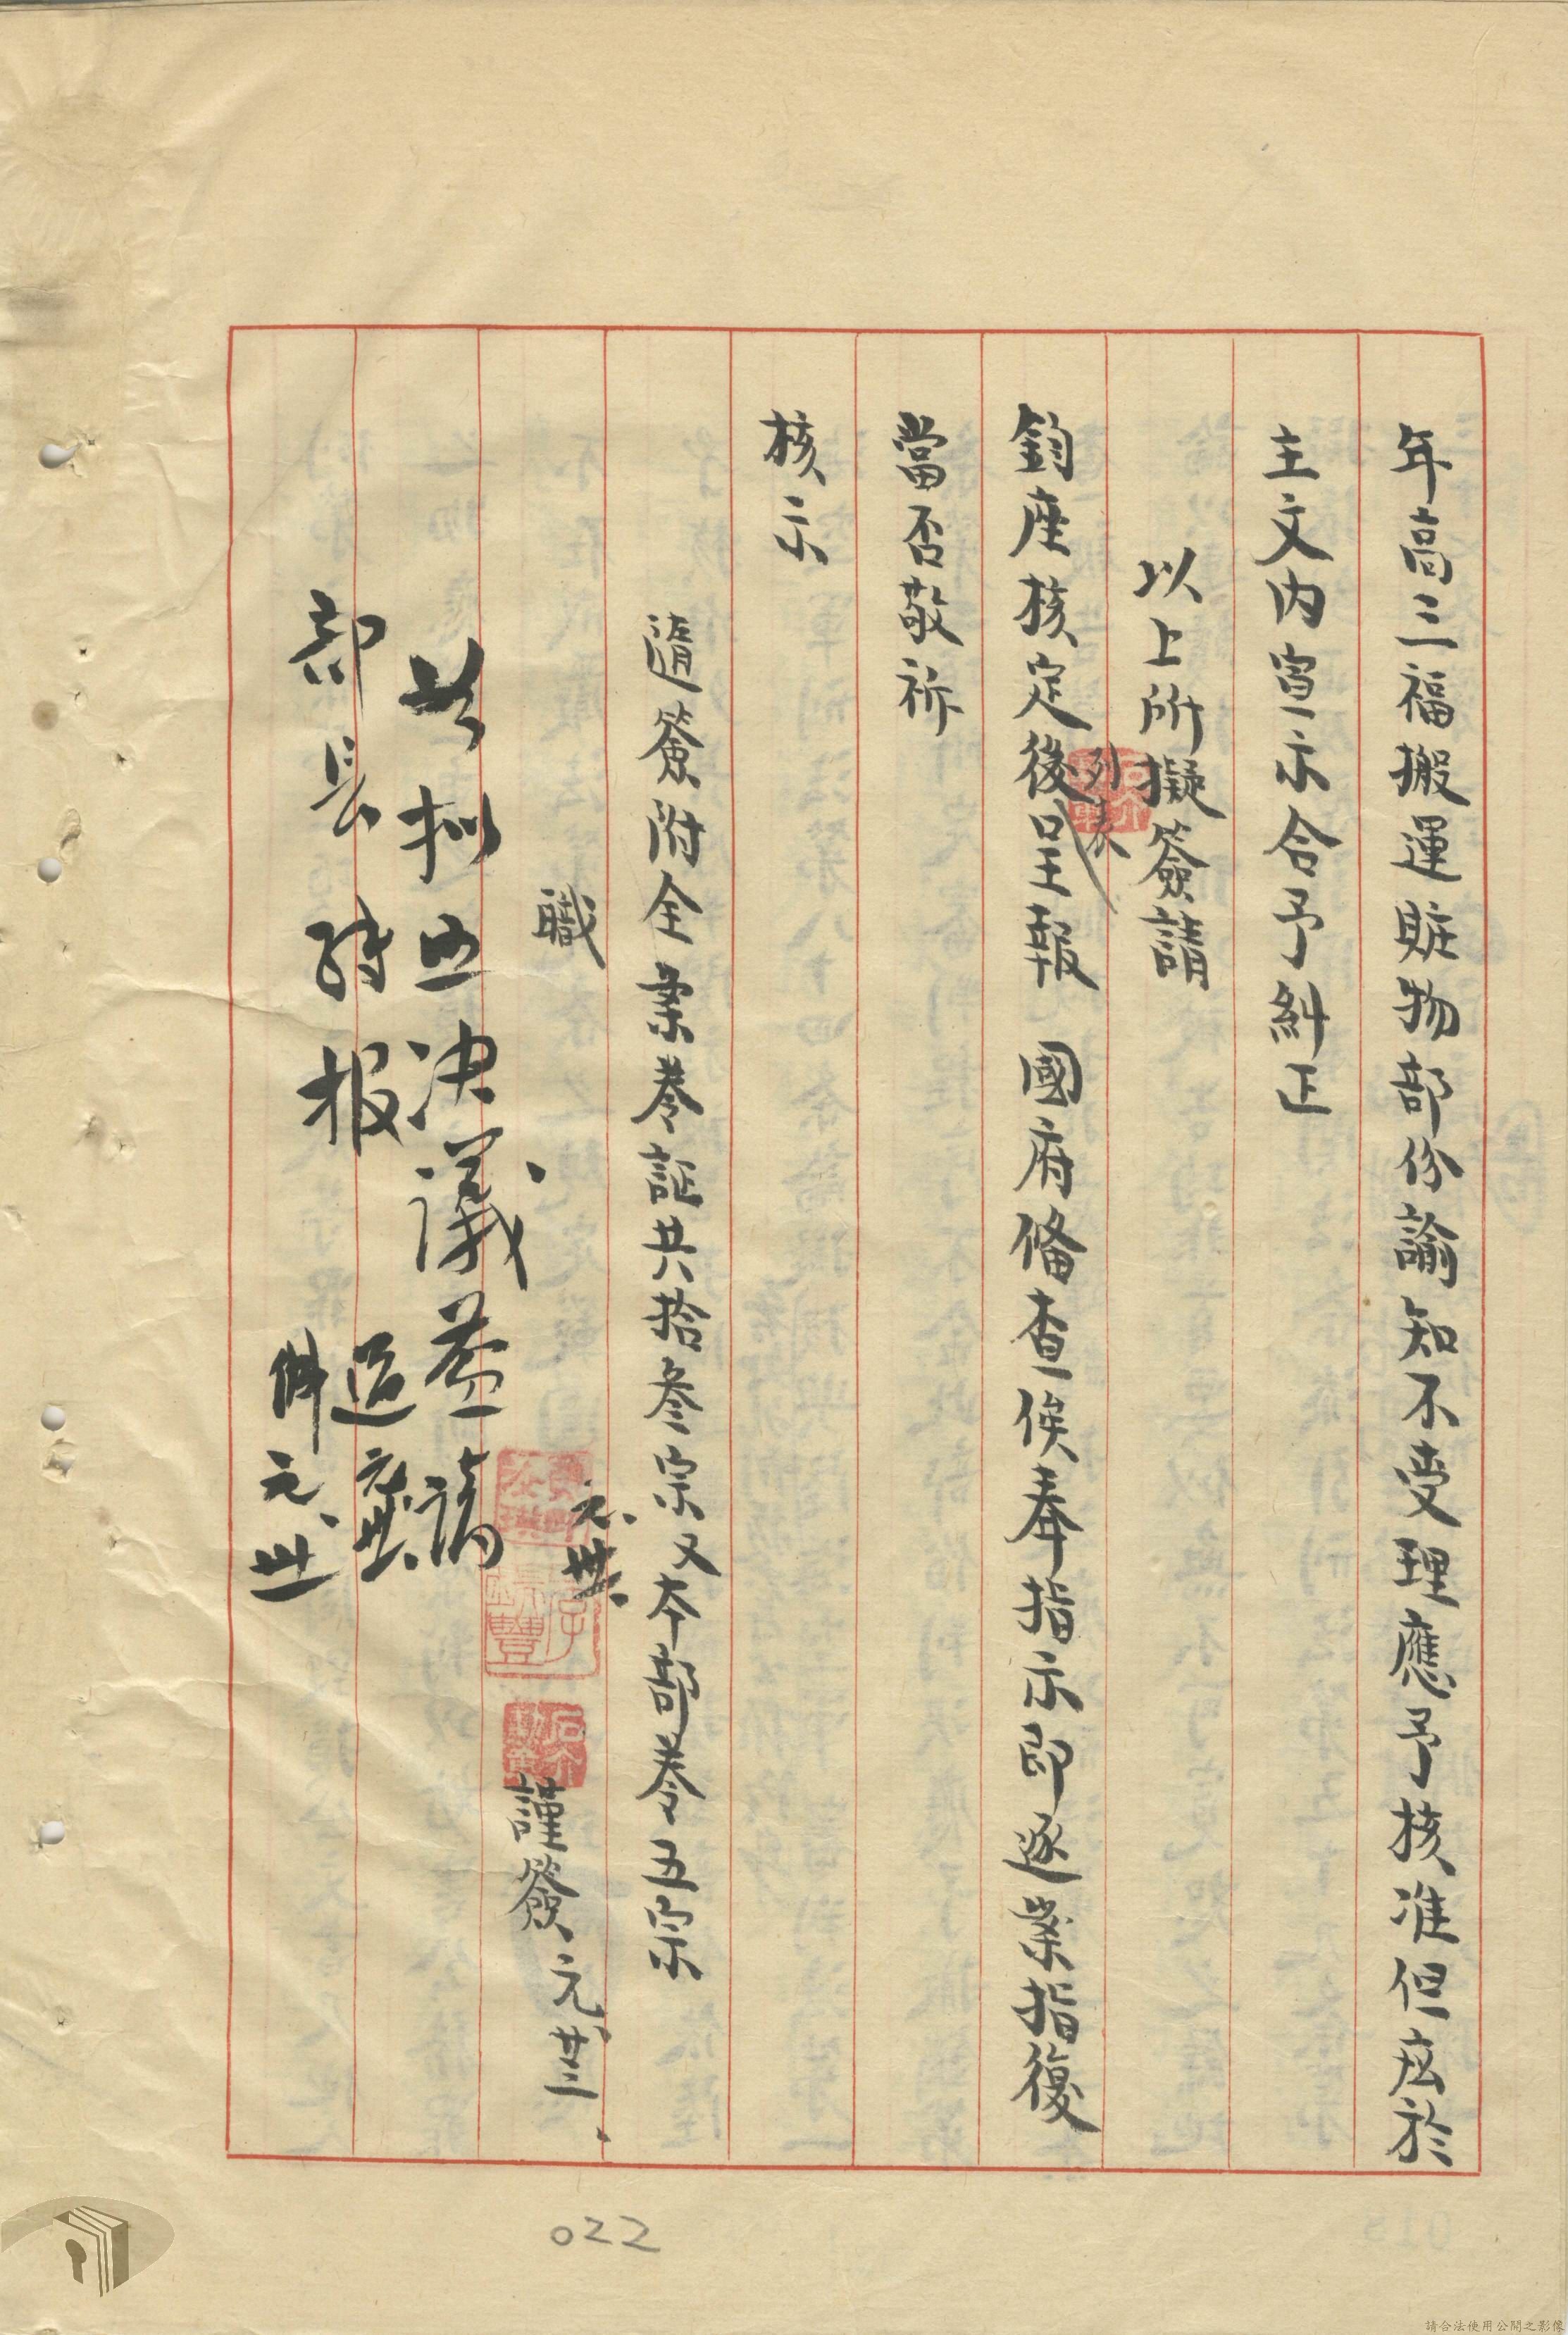 年高三福搬運贓物部份諭知不受理應予核准但应於
主文内宣示合予糾正
以上所擬簽請
鈞座核定後列表呈報 國府俻查俟奉指示即逐案指復
當否敬祈
核示
隨簽附全案卷証共拾叁宗又本部卷五宗
職
元、卅、
謹簽 元、廿三、
决議
請
部長
报
元、卅
022
請合法使用公開之影像